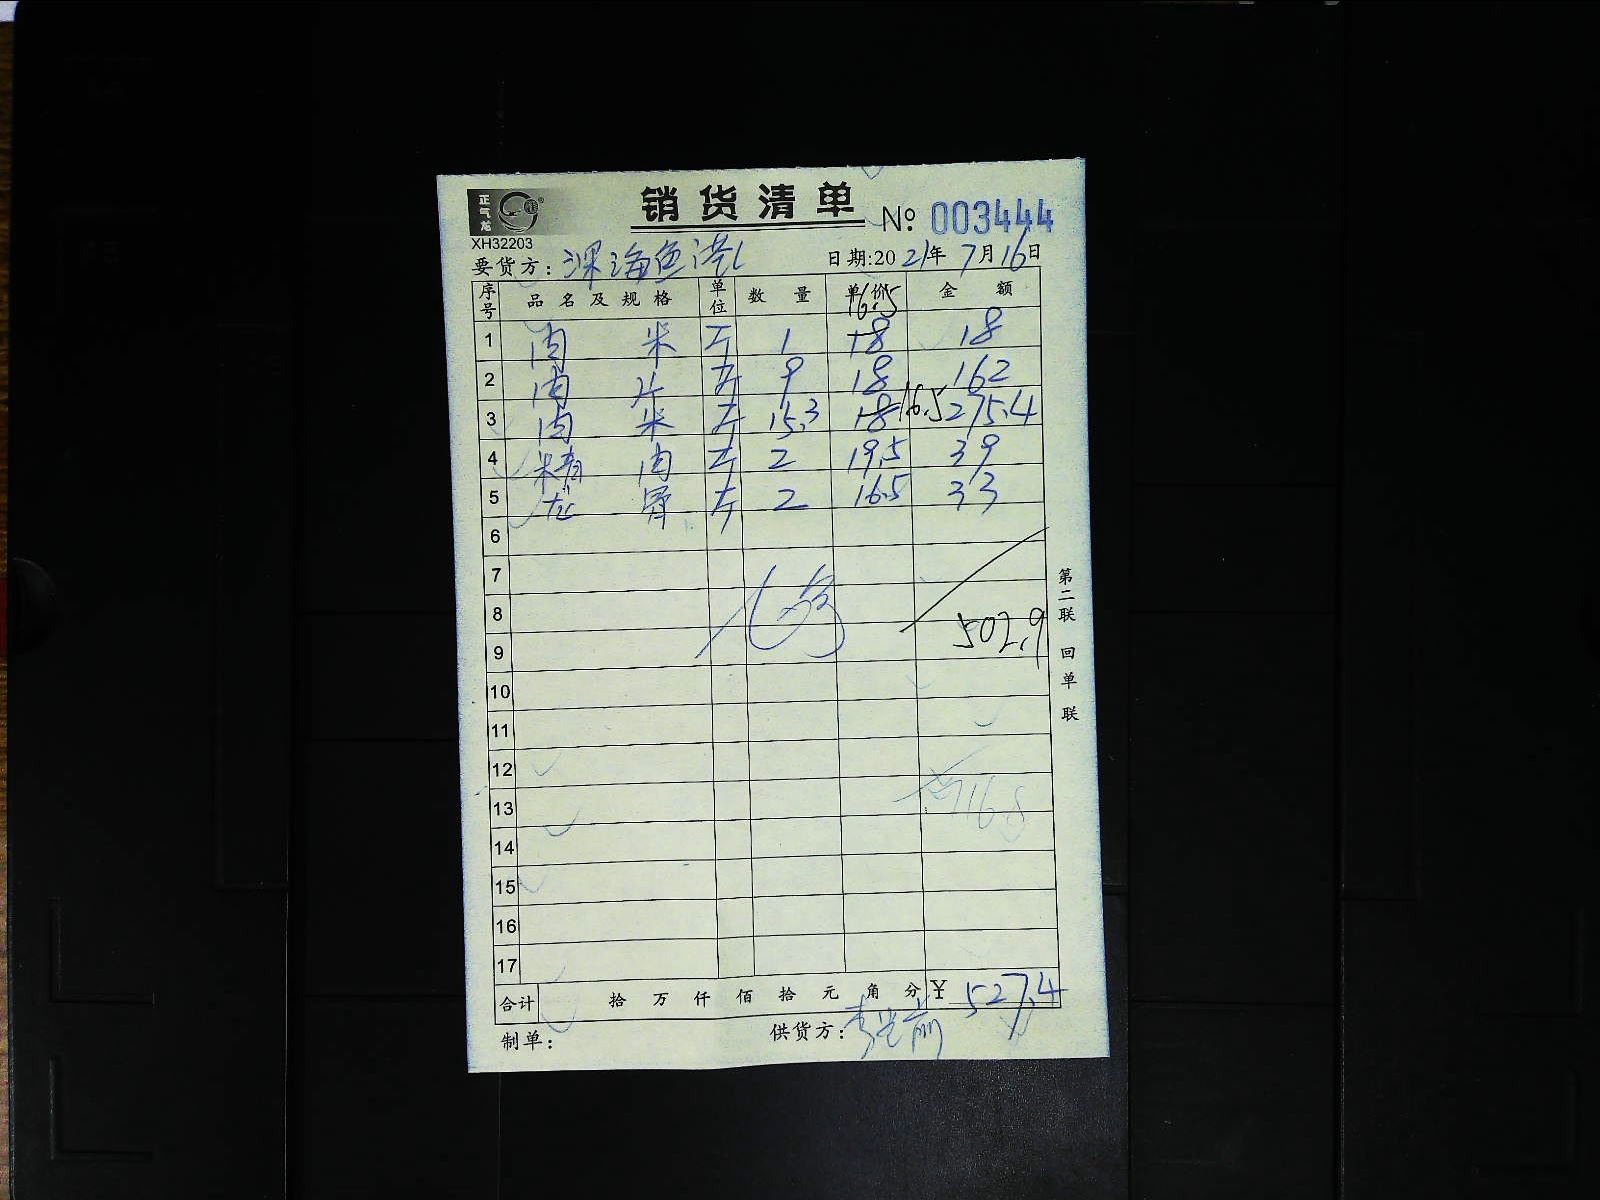 正气龙
销货清单
XH32203
№ 003444
要货方：深海鱼港 日期:2021年7月16日
序号 品名及规格 单位 数量 单价 金额
16.5
1 肉米 斤 1 18 18
2 肉片 斤 9 18 162
3 肉米 斤 15.3 18 16.5 275.4
4 精肉 斤 2 19.5 39
5 龙骨 斤 2 16.5 33
6
7
8
9 502.9
10
11
12
13
14
15
16
17
合计 拾万仟佰拾元角分 ¥ 527.4
制单： 供货方：
第二联 回单联